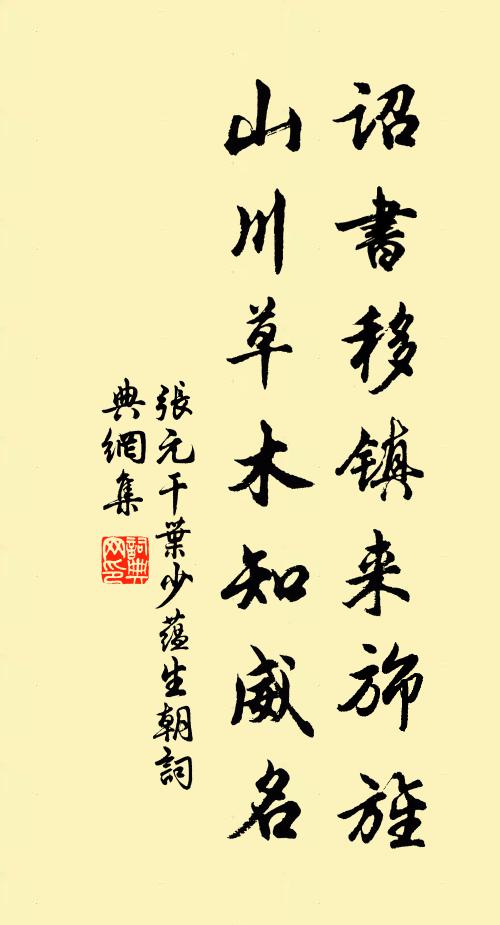 诏書移镇来旆旌
山川草木知威名
張元干葉少蕴生朝詞
典網集
詞典网印